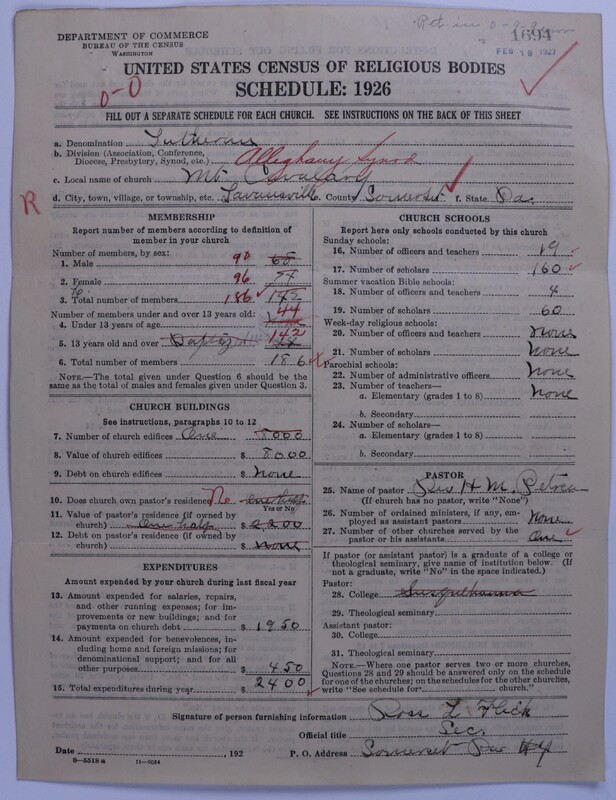 Ret. in
1694
FEB 19 1927
DEPARTMENT OF COMMERCE
BUREAU OF THE CENSUS
WASHINGTON
UNITED STATES CENSUS OF RELIGIOUS BODIES
0-0
SCHEDULE: 1926
FILL OUT A SEPARATE SCHEDULE FOR EACH CHURCH. SEE INSTRUCTIONS ON THE BACK OF THIS SHEET
a. Denomination Lutheran
b. Division (Association, Conference,
Diocese, Presbytery, Synod, etc.) Alleghany Synod
c. Local name of church Mt. Cavalary
R
d. City, town, village, or township, etc. Lavansville e. County Somerset f. State Pa.
MEMBERSHIP
Report number of members according to definition of
member in your church
Number of members, by sex:
1. Male 90 68
2. Female 96 74
3. Total number of members 186 142
Number of members under and over 13 years old: 44
4. Under 13 years of age
5. 13 years old and over 142
6. Total number of members 186
NOTE.—The total given under Question 6 should be the
same as the total of males and females given under Question 3.
CHURCH BUILDINGS
See instructions, paragraphs 10 to 12
7. Number of church edifices One 8000
8. Value of church edifices $ 8000
9. Debt on church edifices $ None
10. Does church own pastor's residence? No one half
Yes or No
11. Value of pastor's residence (if owned by
church) One half $ 2200
12. Debt on pastor's residence (if owned by
church) $ none
EXPENDITURES
Amount expended by your church during last fiscal year
13. Amount expended for salaries, repairs,
and other running expenses; for im-
provements or new buildings; and for
payments on church debt $ 1950
14. Amount expended for benevolences, in-
cluding home and foreign missions; for
denominational support; and for all
other purposes $ 450
15. Total expenditures during year $ 2400
CHURCH SCHOOLS
Report here only schools conducted by this church
Sunday schools:
16. Number of officers and teachers 19
17. Number of scholars 160
Summer vacation Bible schools:
18. Number of officers and teachers 4
19. Number of scholars 60
Week-day religious schools:
20. Number of officers and teachers None
21. Number of scholars None
Parochial schools:
22. Number of administrative officers None
23. Number of teachers—
a. Elementary (grades 1 to 8) None
b. Secondary
24. Number of scholars—
a. Elementary (grades 1 to 8)
b. Secondary
PASTOR
25. Name of pastor Rev H. M. Petrea
(If church has no pastor, write "None")
26. Number of ordained ministers, if any, em-
ployed as assistant pastors None
27. Number of other churches served by the
pastor or his assistants One
If pastor (or assistant pastor) is a graduate of a college or
theological seminary, give name of institution below. (If
not a graduate, write "No" in the space indicated.)
Pastor:
28. College Susquehanna
29. Theological seminary
Assistant pastor:
30. College
31. Theological seminary
NOTE.—Where one pastor serves two or more churches,
Questions 28 and 29 should be answered only on the schedule
for one of the churches; on the schedules for the other churches,
write "See schedule for church."
Signature of person furnishing information Ross L Flick
Official title Sec.
Date , 192
P. O. Address Somerset
8—5518 a 11—9084